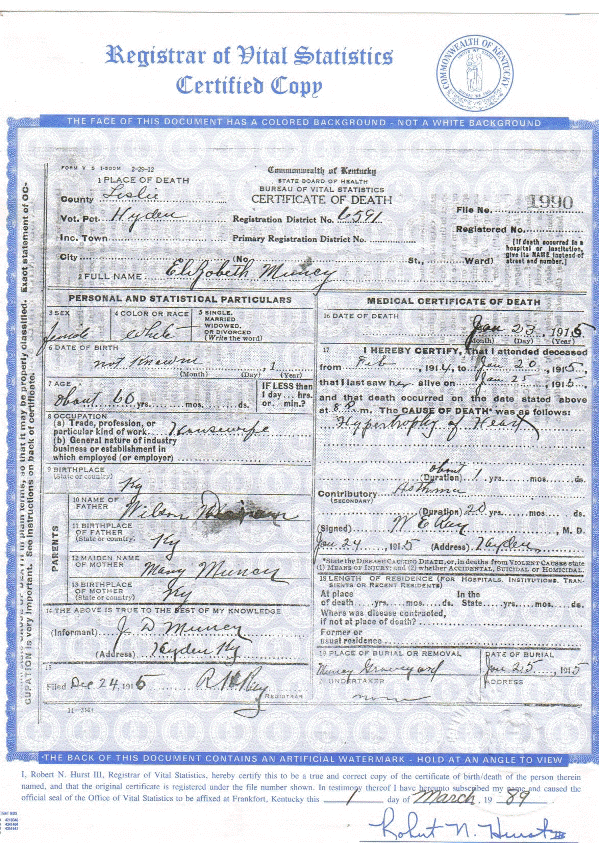 Registrar of Vital Statistics
Certified Copy
COMMONWEALTH OF KENTUCKY
THE FACE OF THIS DOCUMENT HAS A COLORED BACKGROUND - NOT A WHITE BACKGROUND
FORM V S 1-500M 2-29-12
1 PLACE OF DEATH
Commonwealth of Kentucky
STATE BOARD OF HEALTH
BUREAU OF VITAL STATISTICS
CERTIFICATE OF DEATH
County Leslie
Vot. Pct Hyden
Registration District No. 6591
File No. 1990
Inc. Town
Primary Registration District No.
Registered No.
City
No
St.,
Ward)
(If death occurred in a hospital or institution, give its NAME instead of street and number.)
2 FULL NAME Elizabeth Muncy
PERSONAL AND STATISTICAL PARTICULARS
3 SEX female
4 COLOR OR RACE White
5 SINGLE, MARRIED WIDOWED, OR DIVORCED (Write the word)
6 DATE OF BIRTH
not known , 1
(Month) (Day) (Year)
7 AGE
about 60 yrs. mos. ds.
IF LESS than 1 day... hrs. or... min.?
8 OCCUPATION
(a) Trade, profession, or particular kind of work Housewife
(b) General nature of industry
business or establishment in
which employed (or employer)
9 BIRTHPLACE
(State or country) Ky
PARENTS
10 NAME OF FATHER Wilson
11 BIRTHPLACE OF FATHER (State or country) Ky
12 MAIDEN NAME OF MOTHER Mary Muncy
13 BIRTHPLACE OF MOTHER (State or country) Ky
14 THE ABOVE IS TRUE TO THE BEST OF MY KNOWLEDGE
(Informant) J. D Muncy
(Address) Hyden Ky
15
Filed Dec 24, 1915
REGISTRAR
MEDICAL CERTIFICATE OF DEATH
16 DATE OF DEATH
Jan 23, 1915
(Month) (Day) (Year)
17 I HEREBY CERTIFY, That I attended deceased
from Feb , 1914, to Jan 20 , 1915,
that I last saw her alive on Jan 25 , 1915,
and that death occurred on the date stated above
at 8 P. m. The CAUSE OF DEATH* was as follows:
Hypertrophy of Heart
about
(Duration) 1 yrs. mos. ds.
Contributory Asthma
(SECONDARY)
(Duration) 20 yrs. mos. ds.
(Signed) , M. D.
Jan 24 , 1915 (Address) Hyden
*State the DISEASE CAUSING DEATH, or, in deaths from VIOLENT CAUSES state (1) MEANS OF INJURY; and (2) whether ACCIDENTAL, SUICIDAL or HOMICIDAL.
18 LENGTH OF RESIDENCE (FOR HOSPITALS, INSTITUTIONS, TRANSIENTS OR RECENT RESIDENTS)
At place of death yrs. mos. ds. In the State yrs. mos. ds.
Where was disease contracted, if not at place of death?
Former or usual residence
19 PLACE OF BURIAL OR REMOVAL
Muncy Graveyard
DATE OF BURIAL
Jan 25 , 1915
20 UNDERTAKER
none
ADDRESS
THE BACK OF THIS DOCUMENT CONTAINS AN ARTIFICIAL WATERMARK - HOLD AT AN ANGLE TO VIEW
I, Robert N. Hurst III, Registrar of Vital Statistics, hereby certify this to be a true and correct copy of the certificate of birth/death of the person therein
named, and that the original certificate is registered under the file number shown. In testimony thereof I have hereunto subscribed my name and caused the
official seal of the Office of Vital Statistics to be affixed at Frankfort, Kentucky this 1 day of March, 19 89
Robert N. Hurst III